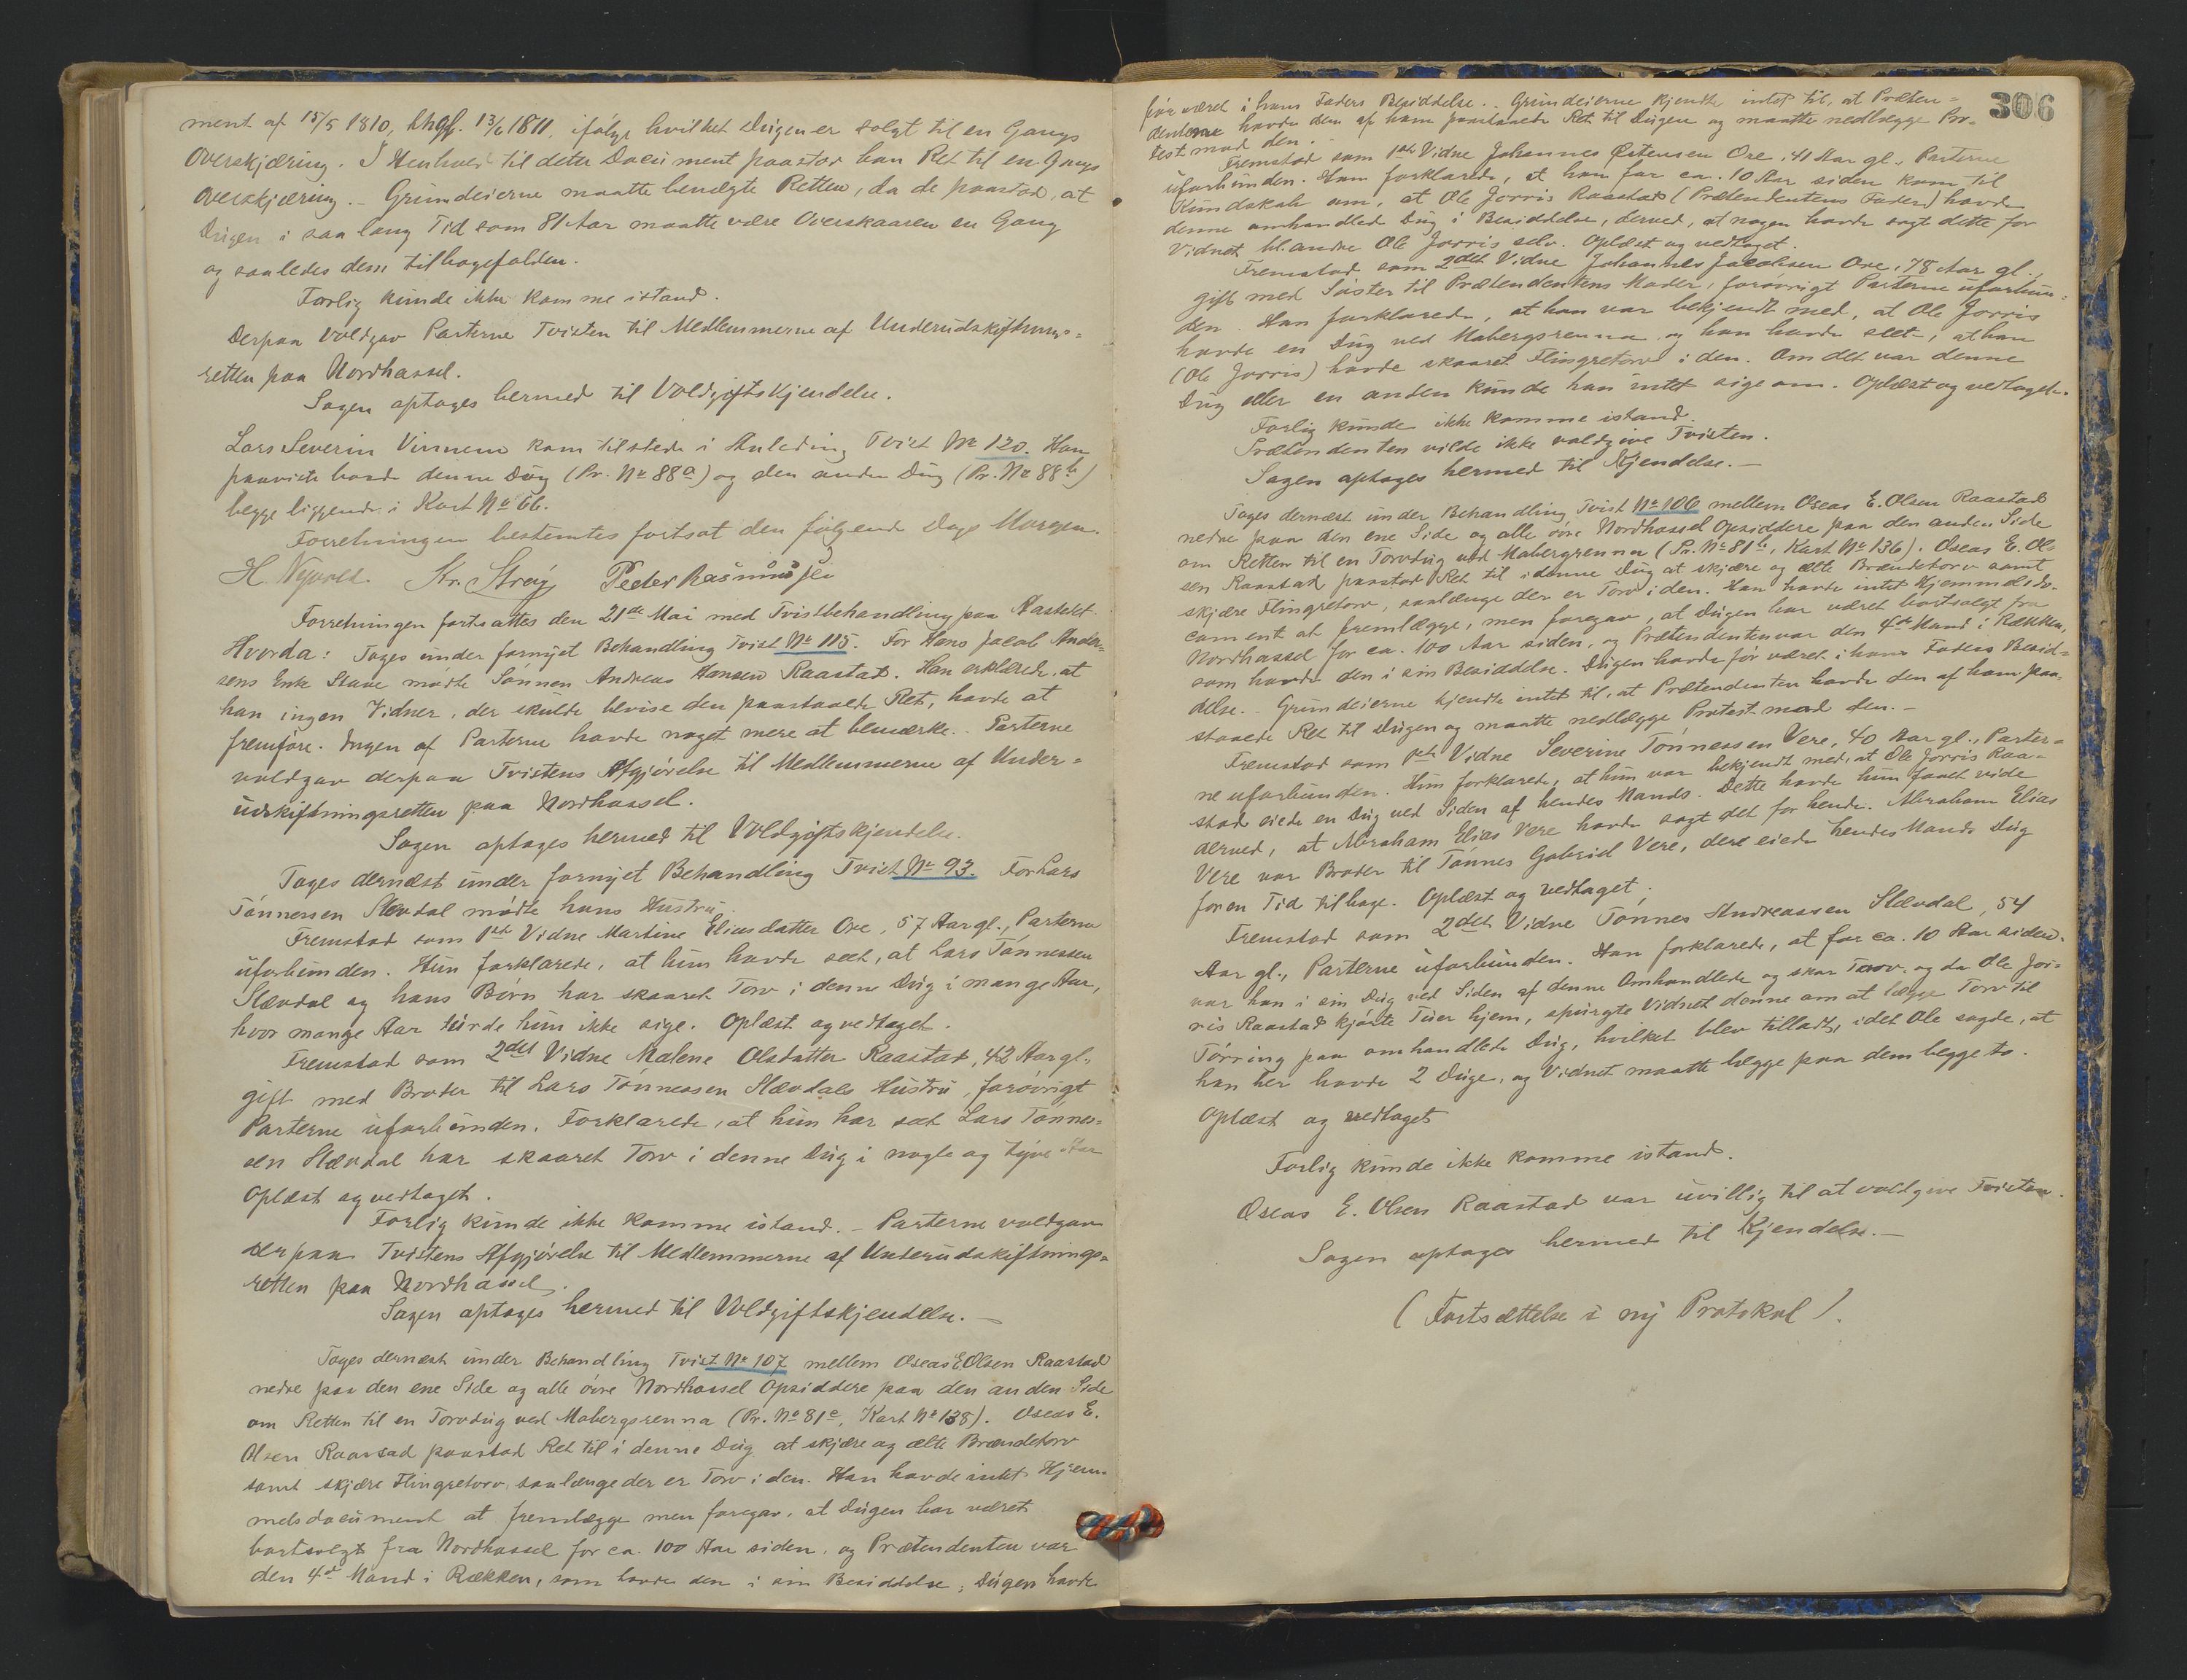 ment af 15/5 1810, thgl. 13/6 1811, ifølge hvilket Dugen er solgt til en Gangs
Overskjæring. I Henhold til dette Document paastod han Ret til en Gangs
Overskjæring. - Grundeierne maatte benægte Retten, da de paastod, at
Dugen i saa lang Tid som 81 Aar maatte være Overskaaren en Gang
og saaledes dem tilbagefalden.
Forlig kunde ikke komme istand.
Derpaa voldgav Parterne Tvisten til Medlemmerne af Underudskiftnings=
retten paa Nordhassel.
Sagen optages hermed til Voldgiftskjendelse.
Lars Severin Vinnem kom tilstede i Anledning Tvist No 120. Han
paaviste baade denne Dug (Pr. No 88a) og den anden Dug (Pr. No 88b)
begge liggende i Kart No 66.
Forretningen bestemtes fortsat den følgende Dags Morgen.
H. Nyvold Str. Stray Peder Rasmussen
Forretningen fortsattes den 21de Mai med Tvistbehandling paa Rastedet
Hvorda: Toges under fornyet Behandling Tvist No 115. For Hans Jacob Ander=
sens Enke Stave mødte Sønnen Andreas Hansen Raastad. Han erklærede, at
han ingen Vidner, der skulde bevise den paastaaede Ret, havde at
fremføre. Ingen af Parterne havde noget mere at bemærke. - Parterne
voldgav derpaa Tvistens Afgjørelse til Medlemmerne af Under=
udskiftningsretten paa Nordhassel.
Sagen optages hermed til Voldgiftskjendelse.
Toges dernæst under fornyet Behandling Tvist No 93. For Lars
Tønnessen Stævdal mødte hans Hustru.
Fremstod som 1ste Vidne Martine Eliasdatter Ore, 57 Aar gl., Parterne
uforbunden. Hun forklarede, at hun havde seet, at Lars Tønnessen
Stævdal og hans Børn har skaaret Torv i denne Dug i mange Aar,
hvor mange Aar turde hun ikke sige. Oplæst og vedtaget.
Fremstod som 2det Vidne Malene Olsdatter Raastad, 42 Aar gl.,
gift med Broder til Lars Tønnessen Stævdals Hustru, forøvrigt
Parterne uforbunden. Forklarede, at hun har seet Lars Tønnes=
sen Stævdal har skaaret Torv i denne Dug i nogle og tyve Aar
Oplæst og vedtaget.
Forlig kunde ikke komme istand. - Parterne voldgav
derpaa Tvistens Afgjørelse til Medlemmerne af Underudskiftnings=
retten paa Nordhassel.
Sagen optages hermed til Voldgiftskjendelse. -
Toges dernæst under Behandling Tvist No 107 mellem Oseas E Olsen Raastad
nedre paa den ene Side og alle øvre Nordhassel Opsiddere paa den anden Side
om Retten til en Torvdug ved Mabergsrenna (Pr. No 81c, Kart No 138). Oseas E.
Olsen Raastad paastod Ret til i denne Dug at skjære og ælte Brændetorv
samt skjære Flingretorv, saalænge der er Torv i den. Han havde intet Hjem=
melsdocument at fremlægge men foregav, at Dugen har været
bortsolgt fra Nordhassel for ca. 100 Aar siden, og Prætendenten var
den 4de Mand i Rækken, som havde den i sin Besiddelse; Dugen havde
306
før været i hans Faders Besiddelse. - Grundeierne kjendte intet til, at Præten=
denterne havde den af ham paastaaede Ret til Dugen og maatte nedlægge Pro=
test mod den.
Fremstod som 1ste Vidne Johannes Østensen Ore, 41 Aar gl., Parterne
uforbunden. Han forklarede, at han for ca. 10 Aar siden kom til
Kundskab om, at Ole Jorris Raastad (Prætendentens Fader) havde
denne omhandlede Dug i Besiddelse, derved, at nogen havde sagt dette for
Vidnet bl. andre Ole Jorris selv. Oplæst og vedtaget.
Fremstod som 2det Vidne Johannes Jacobsen Ore, 78 Aar gl.,
gift med Søster til Prætendentens Moder, forøvrigt Parterne uforbun=
den. Han forklarede, at han var bekjendt med, at Ole Jorris
havde en Dug ved Mabergsrenna og han havde seet, at han
(Ole Jorris) havde skaaret Flingretorv i den. Om det var denne
Dug eller en anden kunde han intet sige om. Oplæst og vedtaget.
Forlig kunde ikke komme istand.
Prætendenten vilde ikke voldgive Tvisten.
Sagen optages hermed til Kjendelse. -
Toges dernæst under Behandling Tvist No 106 mellem Oseas E. Olsen Raastad
nedre paa den ene Side og alle øvre Nordhassel Opsiddere paa den anden Side
om Retten til en Torvdug ved Mabergsrenna (Pr. No 81b, Kart No 136). Oseas E. Ol=
sen Raastad paastod Ret til i denne Dug at skjære og ælte Brændetorv samt
skjære Flingretorv, saalænge der er Torv i den. Han havde intet Hjemmelsdo=
cument at fremlægge, men foregav, at Dugen har været bortsolgt fra
Nordhassel for ca. 100 Aar siden, og Prætendenten var den 4de Mand i Rækken,
som havde den i sin Besiddelse. Dugen havde før været i hans Faders Besid=
delse. - Grundeierne kjendte intet til, at Prætendenten havde den af ham paa=
staaede Ret til Dugen og maatte nedlægge Protest mod den. -
Fremstod som 1ste Vidne Severine Tønnessen Vere, 40 Aar gl., Parter=
ne uforbunden. Hun forklarede, at hun var bekjendt med, at Ole Jorris Raa=
stad eiede en Dug ved Siden af hendes Mands. Dette havde hun faaet vide
derved, at Abraham Elias Vere havde sagt det for hende. Abraham Elias
Vere var Broder til Tønnes Gabriel Vere, der eiede hendes Mands Dug
for en Tid tilbage. Oplæst og vedtaget.
Fremstod som 2det Vidne Tønnes Andreassen Stævdal, 54
Aar gl., Parterne uforbunden. Han forklarede, at for ca. 10 Aar siden
var han i sin Dug ved Siden af denne Omhandlede og skar Torv, og da Ole Jor=
ris Raastad kjørte Tuer hjem, spurgte Vidnet denne om at lægge Torv til
Tørring paa omhandlede Dug, hvilket blev tilladt, idet Ole sagde, at
han her havde 2 Duge, og Vidnet maatte lægge paa dem begge to.
Oplæst og vedtaget
Forlig kunde ikke komme istand.
Oseas E. Olsen Raastad var uvillig til at voldgive Tvisten.
Sagen optages hermed til Kjendelse. -
(Fortsættelse i ny Protokol).